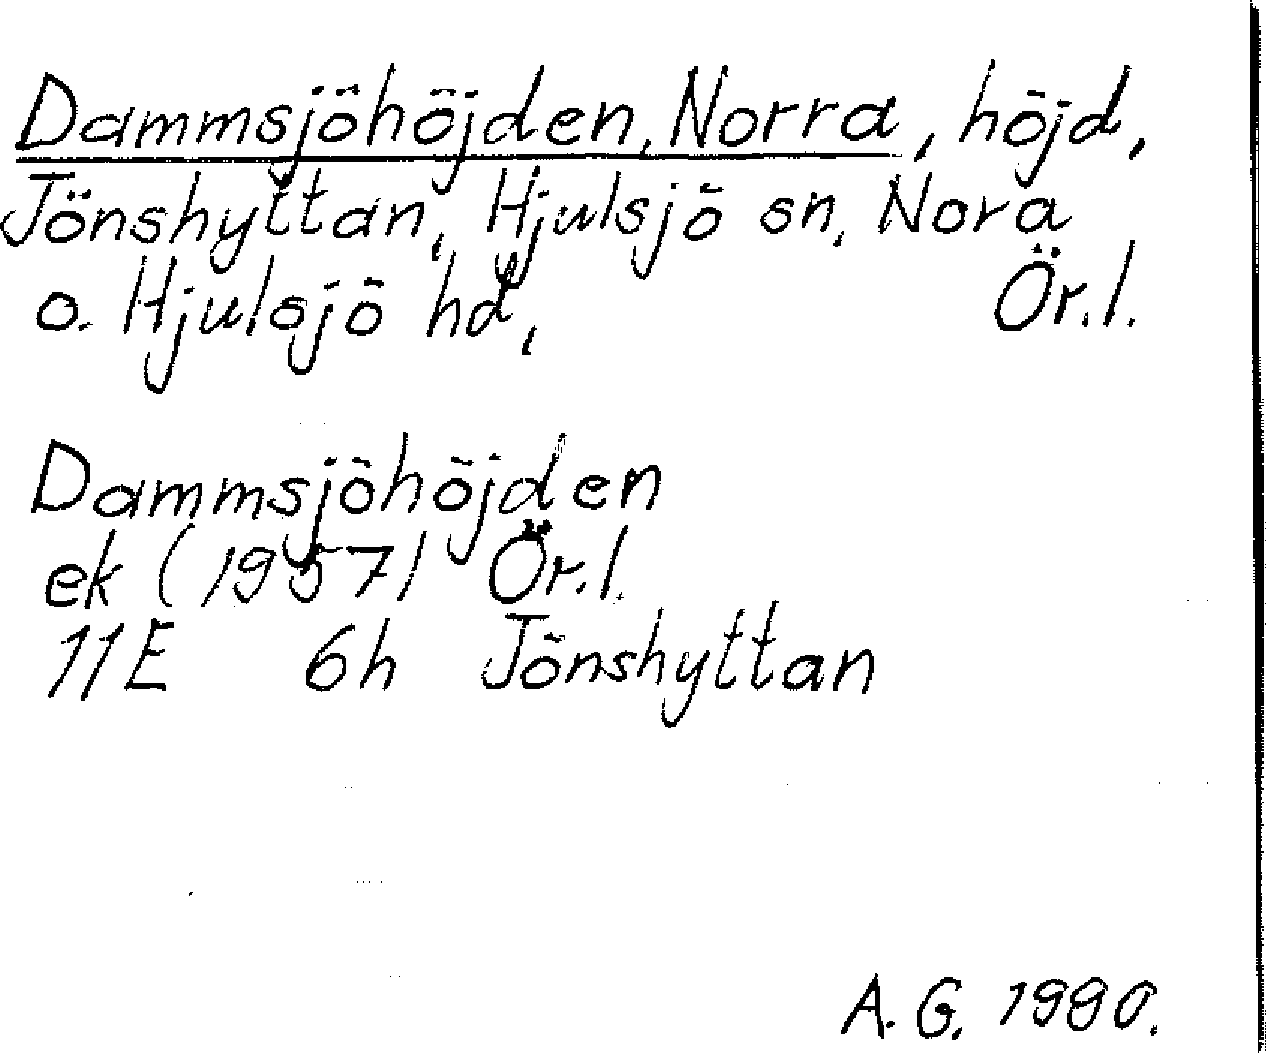 Dammsjöhöjden, Norra, höjd,
Jönshyttan, Hjulsjö sn, Nora
o. Hjulsjö hd, Ör.l.
Dammsjöhöjden
ek (1957) Ör.l.
11E 6h Jönshyttan
A.G. 1990.